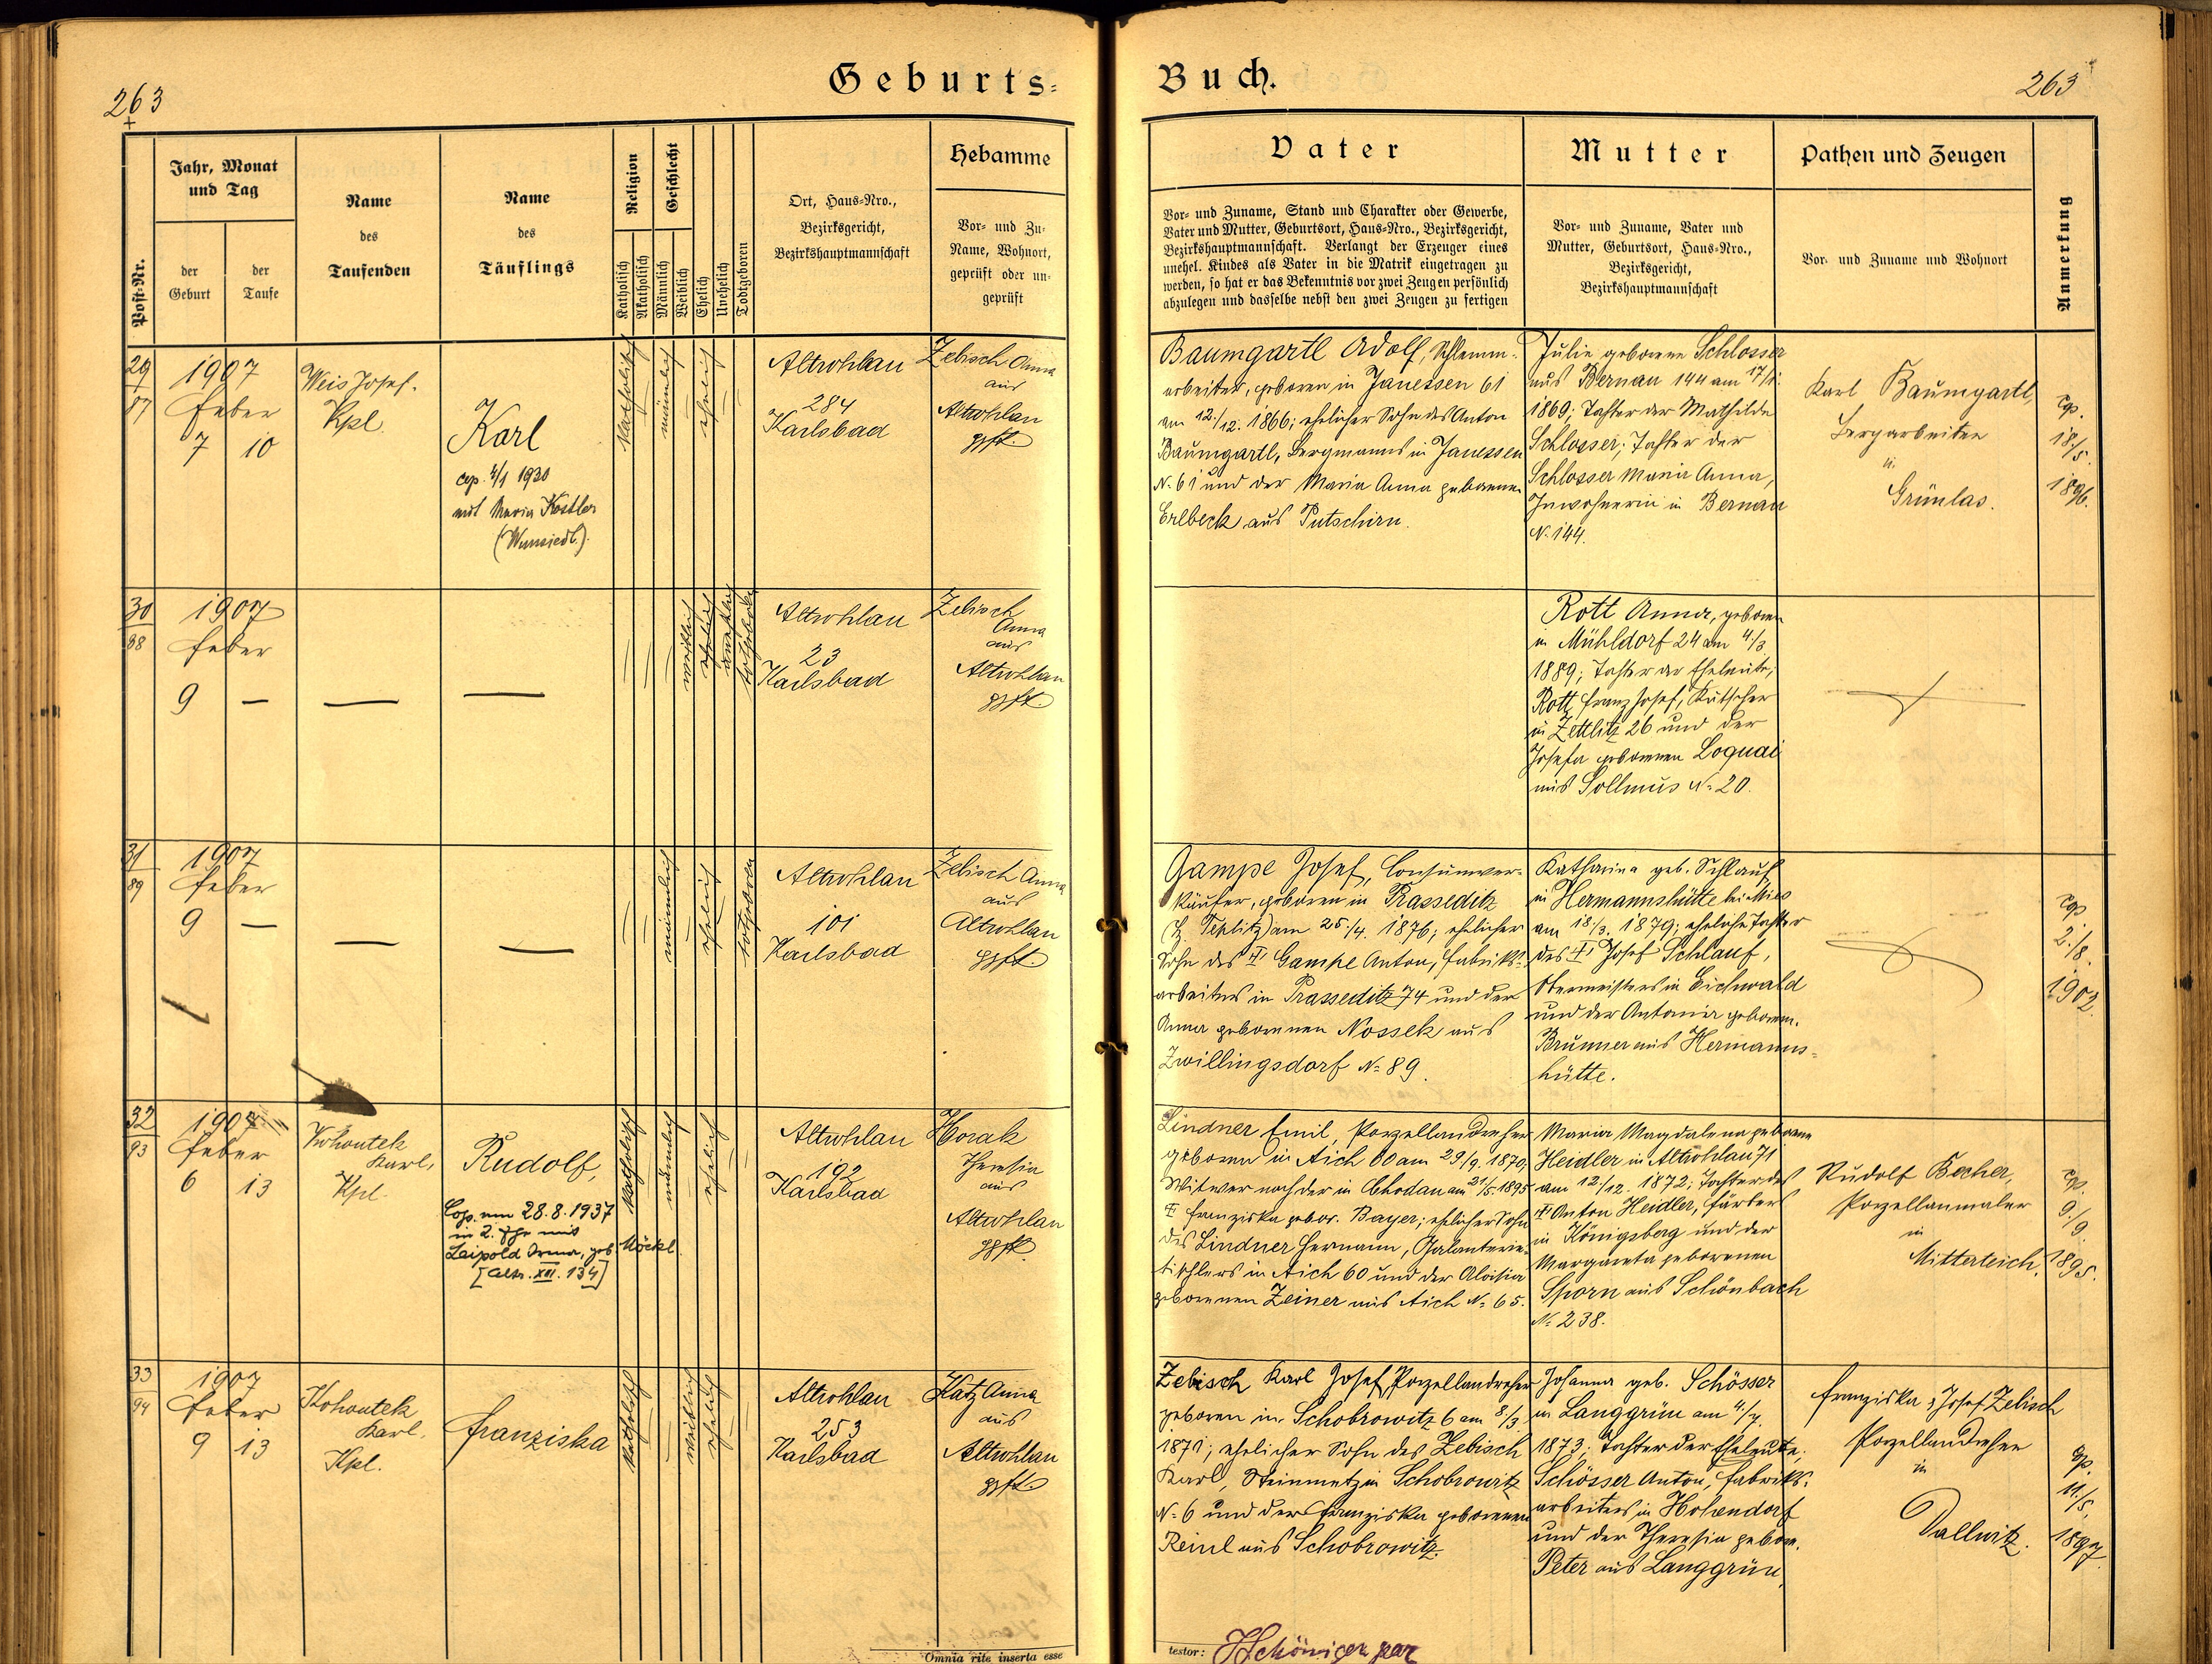 263
Geburts-
Buch.
263
Post-Nr.
Jahr, Monat
und Tag
der
Geburt
der
Taufe
Name
des
Taufenden
Name
des
Täuflings
Religion
Katholisch
Akatholisch
Geschlecht
Männlich
Weiblich
Ehelich
Unehelich
Todtgeboren
Ort, Haus-Nro.,
Bezirksgericht,
Bezirkshauptmannschaft
Hebamme
Vor- und Zu-
Name, Wohnort,
geprüft oder un-
geprüft
Vater
Vor- und Zuname, Stand und Charakter oder Gewerbe,
Vater und Mutter, Geburtsort, Haus-Nro., Bezirksgericht,
Bezirkshauptmannschaft. Verlangt der Erzeuger eines
unehel. Kindes als Vater in die Matrik eingetragen zu
werden, so hat er das Bekenntnis vor zwei Zeugen persönlich
abzulegen und dasselbe nebst den zwei Zeugen zu fertigen
Mutter
Vor- und Zuname, Vater und
Mutter, Geburtsort, Haus-Nro.,
Bezirksgericht,
Bezirkshauptmannschaft
Pathen und Zeugen
Vor- und Zuname und Wohnort
Anmerkung
29
87
1907
Feber
7 10
Weis Josef.
Kpl.
Karl
cop. 4/1 1930
mit Maria Köstler
(Wunsiedl.)
katholisch
männlich
ehelich
Altrohlau
284
Karlsbad
Zebisch Anna
aus
Altrohlau
gpft.
Baumgartl Adolf, Schlemm-
arbeiter, geboren in Janessen 61
am 12./12. 1866; ehelicher Sohn des Anton
Baumgartl, Bergmanns in Janessen
N. 61 und der Maria Anna geborenen
Erlbeck aus Putschirn.
Julie geborene Schlosser
aus Bernau 144 am 17/1.
1869; Tochter der Mathilde
Schlosser; Tochter der
Schlosser Maria Anna,
Inwohnerin in Bernau
N. 144.
Karl Baumgartl,
Bergarbeiter
in
Grünlas.
cop.
18./5.
1896.
30
88
1907
Feber
9 —
—
—
weiblich
unehelich
totgeboren
Altrohlau
23
Karlsbad
Zebisch
Anna
aus
Altrohlau
gpft.
Rott Anna, geboren
in Mühldorf 24 am 4./3.
1889; Tochter der Eheleute;
Rott Franz Josef, Kutscher
in Zettlitz 26 und der
Josefa geborenen Loquai
aus Sollmus N. 20.
31
89
1907
Feber
9 —
—
—
männlich
ehelich
totgeboren
Altrohlau
101
Karlsbad
Zebisch Anna
aus
Altrohlau
gpft.
Gampe Josef, Consumver-
käufer, geboren in Prasseditz
(Bz. Teplitz) am 25./4. 1876; ehelicher
Sohn des † Gampe Anton, Fabriks-
arbeiters in Prasseditz 74 und der
Anna geborenen Nossek aus
Zwillingsdorf N. 89.
Katharina geb. Schlauf
in Hermannshütte bei Mies
am 18./3. 1879; eheliche Tochter
des † Josef Schlauf,
Obermeisters in Eichwald
und der Antonia geboren.
Brunner aus Hermanns-
hütte.
cop.
2./8.
1902.
32
93
1907
Feber
6 13
Kohoutek
Karl,
Kpl.
Rudolf,
Cop. am 28.8.1937
in 2. Ehe mit
Leipold Irma, geb. Möckl
[Altr. XII. 134]
katholisch
männlich
ehelich
Altrohlau
192
Karlsbad
Horak
Theresia
aus
Altrohlau
gpft.
Lindner Emil, Porzellandreher
geboren in Aich 60 am 29/9. 1870,
Witwer nach der in Chodau am 21/5. 1895
† Franziska gebor. Bayer; ehelicher Sohn
des Lindner Hermann, Galanterie-
tischlers in Aich 60 und der Aloisia
geborenen Zeiner aus Aich N. 65.
Maria Magdalena geborene
Heidler in Altrohlau 71
am 12./12. 1872; Tochter des
† Anton Heidler, Färbers
in Königsberg und der
Margareta geborenen
Sporn aus Schönbach
N. 238.
Rudolf Becher,
Porzellanmaler
in
Mitterteich.
cop.
9./9.
1895.
33
94
1907
Feber
9 13
Kohoutek
Karl.
Kpl.
Franziska
katholisch
weiblich
ehelich
Altrohlau
253
Karlsbad
Katz Anna
aus
Altrohlau
gpft.
Zebisch Karl Josef, Porzellandreher
geboren in Schobrowitz 6 am 8/3
1871; ehelicher Sohn des Zebisch
Karl, Steinmetz in Schobrowitz
N. 6 und der Franziska geborenen
Reinl aus Schobrowitz.
Johanna geb. Schösser
in Langgrün am 4./7.
1873; Tochter der Eheleute;
Schösser Anton, Fabriks-
arbeiters in Hohendorf
und der Theresia gebor.
Peter aus Langgrün.
Franziska & Josef Zebisch
Porzellandreher
in
Dallwitz.
cop.
11./5.
1897.
Omnia rite inserta esse
testor: